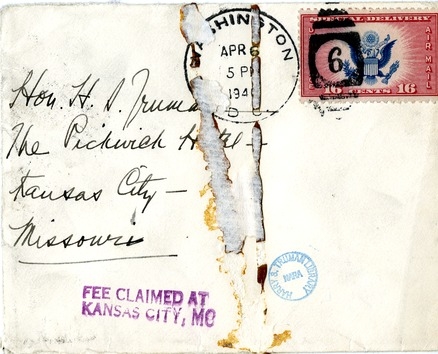 WASHINGTON
APR 6
5 PM
194
D
6
SPECIAL DELIVERY
AIR MAIL
16 CENTS 16
Hon. H. S. Truma
The Pickwick Hotel -
Kansas City -
Missouri
HARRY S. TRUMAN LIBRARY
NARA
FEE CLAIMED AT
KANSAS CITY, MO